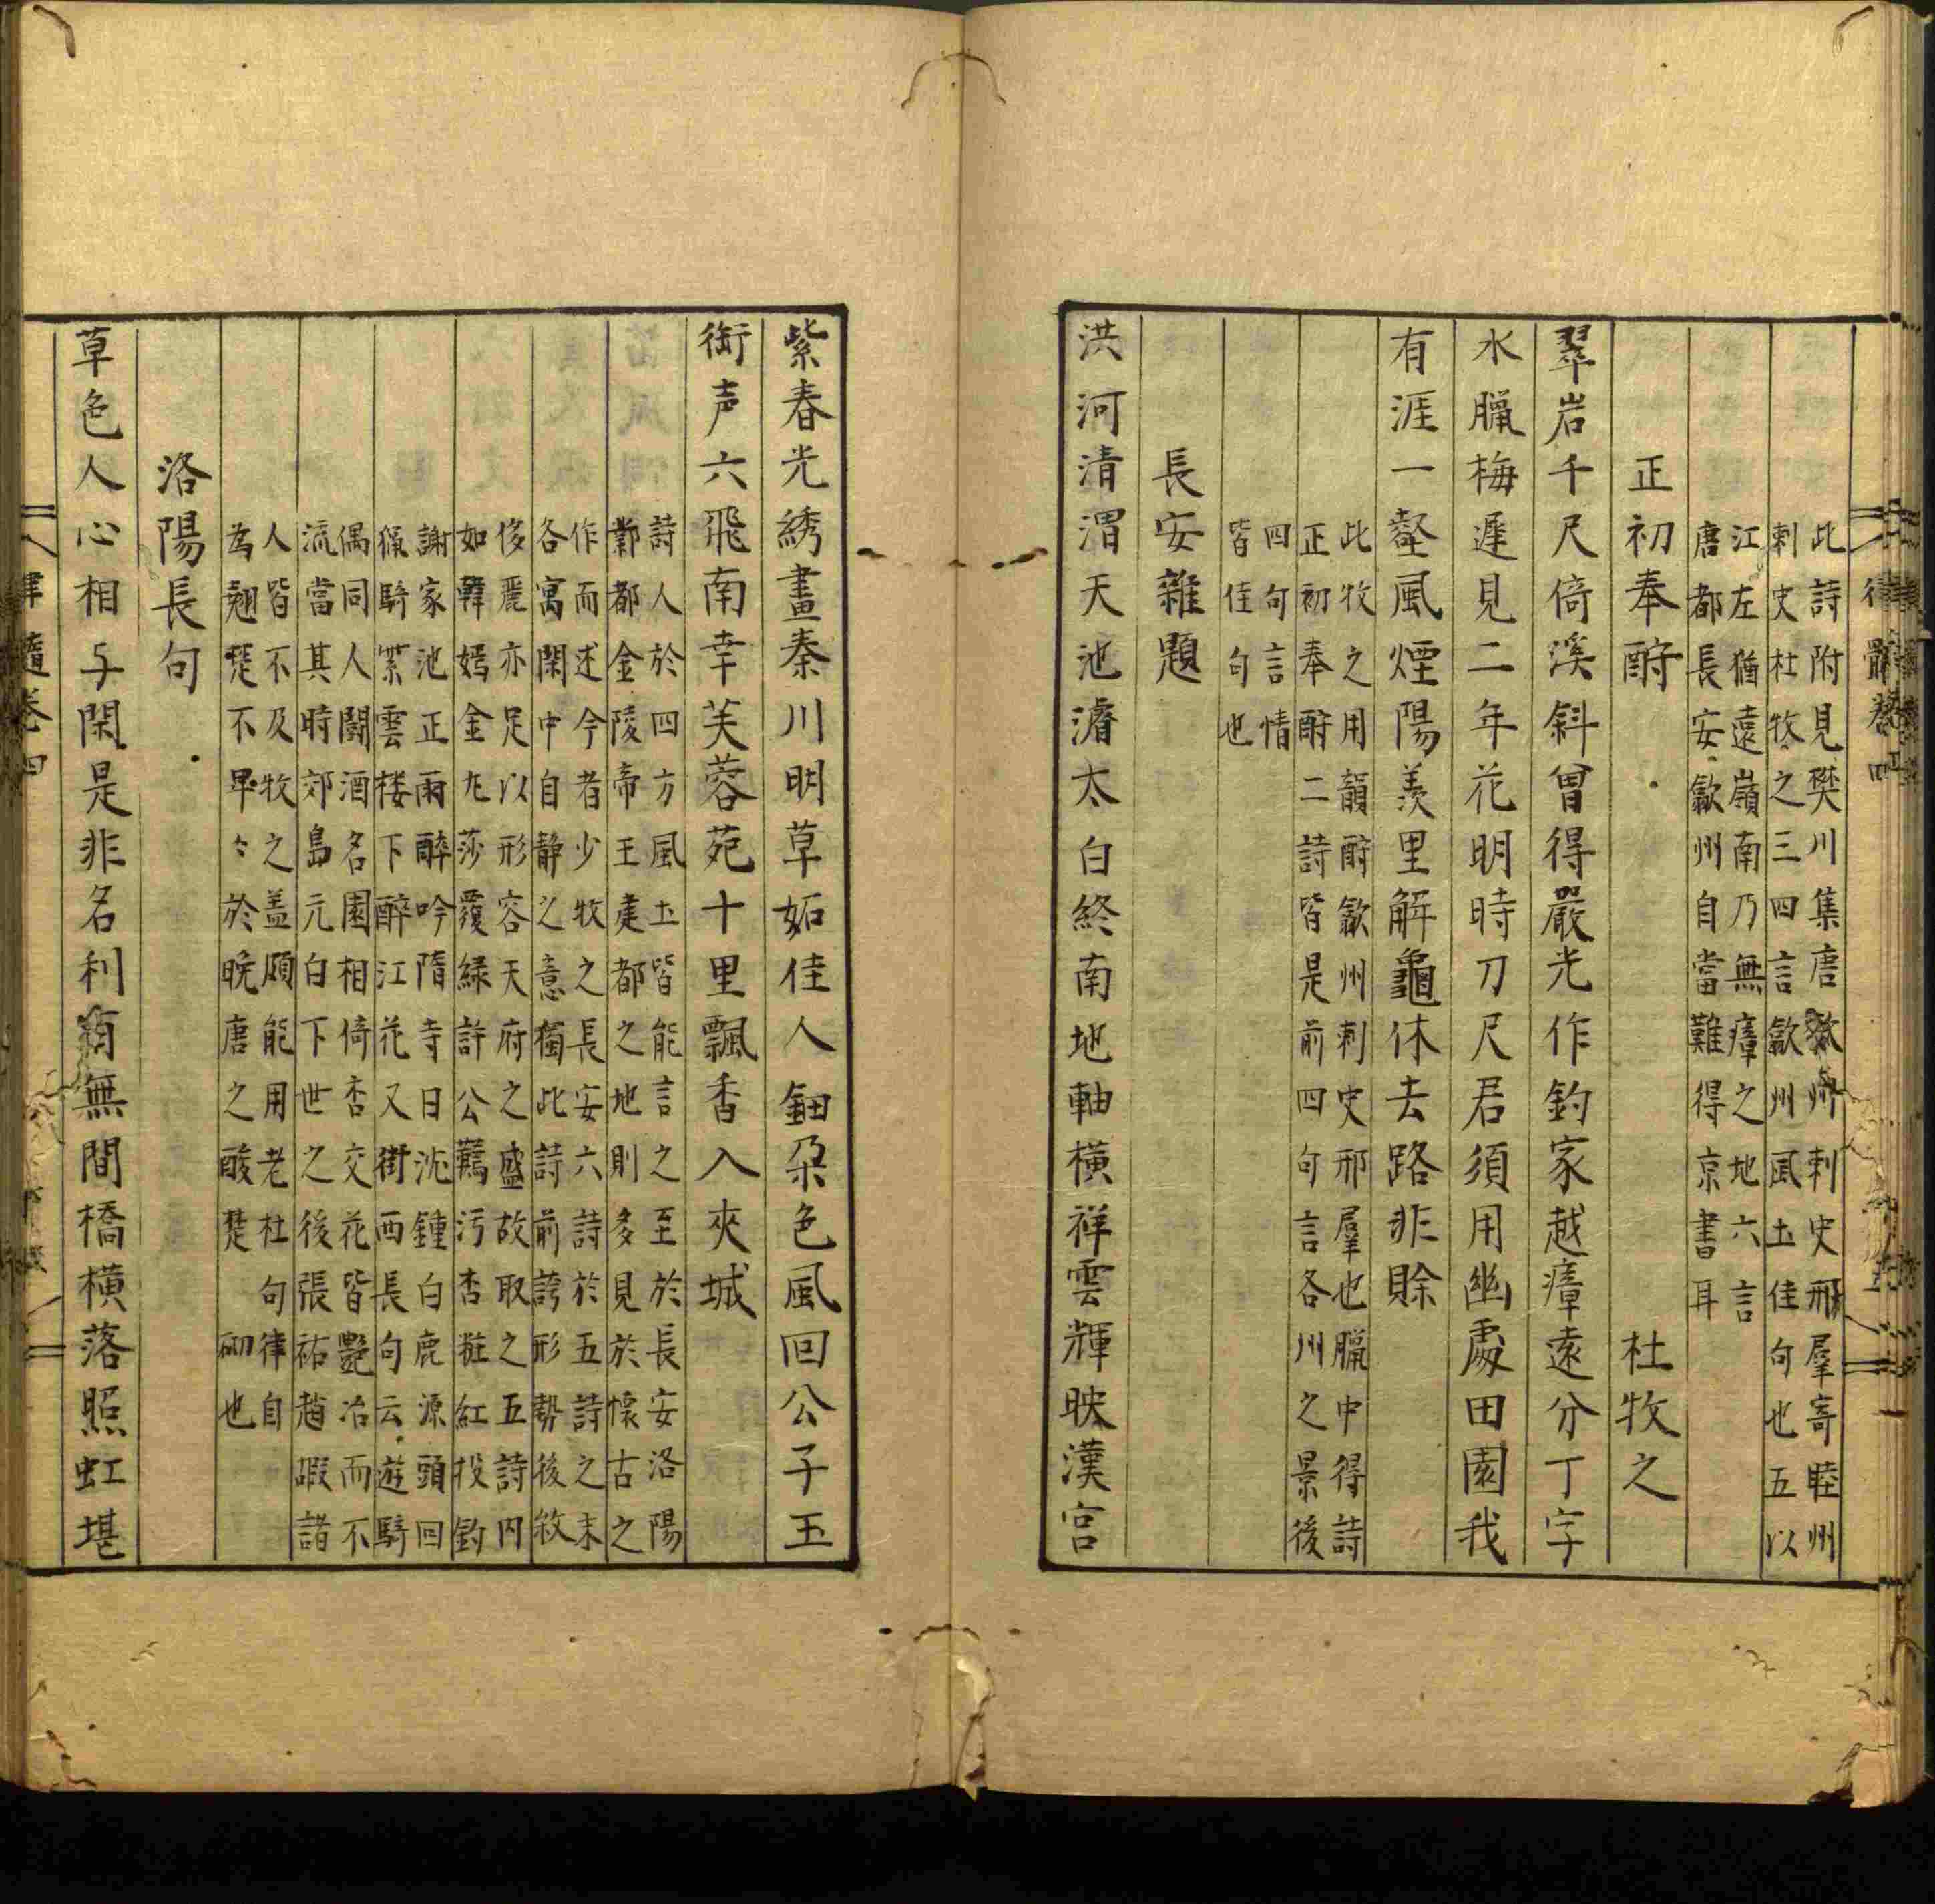 律髓卷四
此詩附見樊川集唐歙州刺史邢羣寄睦州
刺史杜牧之三四言歙州風土佳句也五以
江左猶遠嶺南乃無瘴之地六言
唐都長安歙州自當難得京書耳
正初奉酧　杜牧之
翠岩千尺倚溪斜曾得嚴光作釣家越瘴遠分丁字
水臘梅遲見二年花明時刀尺君須用幽處田園我
有涯一壑風煙陽羨里解龜休去路非賒
此牧之用韻酧歙州刺史邢羣也臘中得詩
正初奉酧二詩皆是前四句言各州之景後
四句言情
皆佳句也
長安雜題
洪河清渭天池濬太白終南地軸橫祥雲輝映漢宮
紫春光綉畫秦川明草妬佳人鈿朶色風回公子玉
銜声六飛南幸芙蓉苑十里飄香入夾城
詩人於四方風土皆能言之至於長安洛陽
鄴都金陵帝王建都之地則多見於懷古之
作而述今者少牧之長安六詩於五詩之末
各寓閑中自静之意獨此詩前誇形勢後敘
侈麗亦足以形容天府之盛故取之五詩内
如韓嫣金丸莎覆緑許公韉汚杏粧紅投釣
謝家池正雨醉吟隋寺日沈鍾白鹿源頭回
獵騎紫雲楼下醉江花又街西長句云遊騎
偶同人闘酒名園相倚杏交花皆艷冶而不
流當其時郊島元白下世之後張祐趙嘏諸
人皆不及牧之盖頗能用老杜句律自
為翹楚不卑々於晩唐之酸楚　砌也
洛陽長句
草色人心相与閑是非名利有無間橋横落照虹堪
律髓卷四